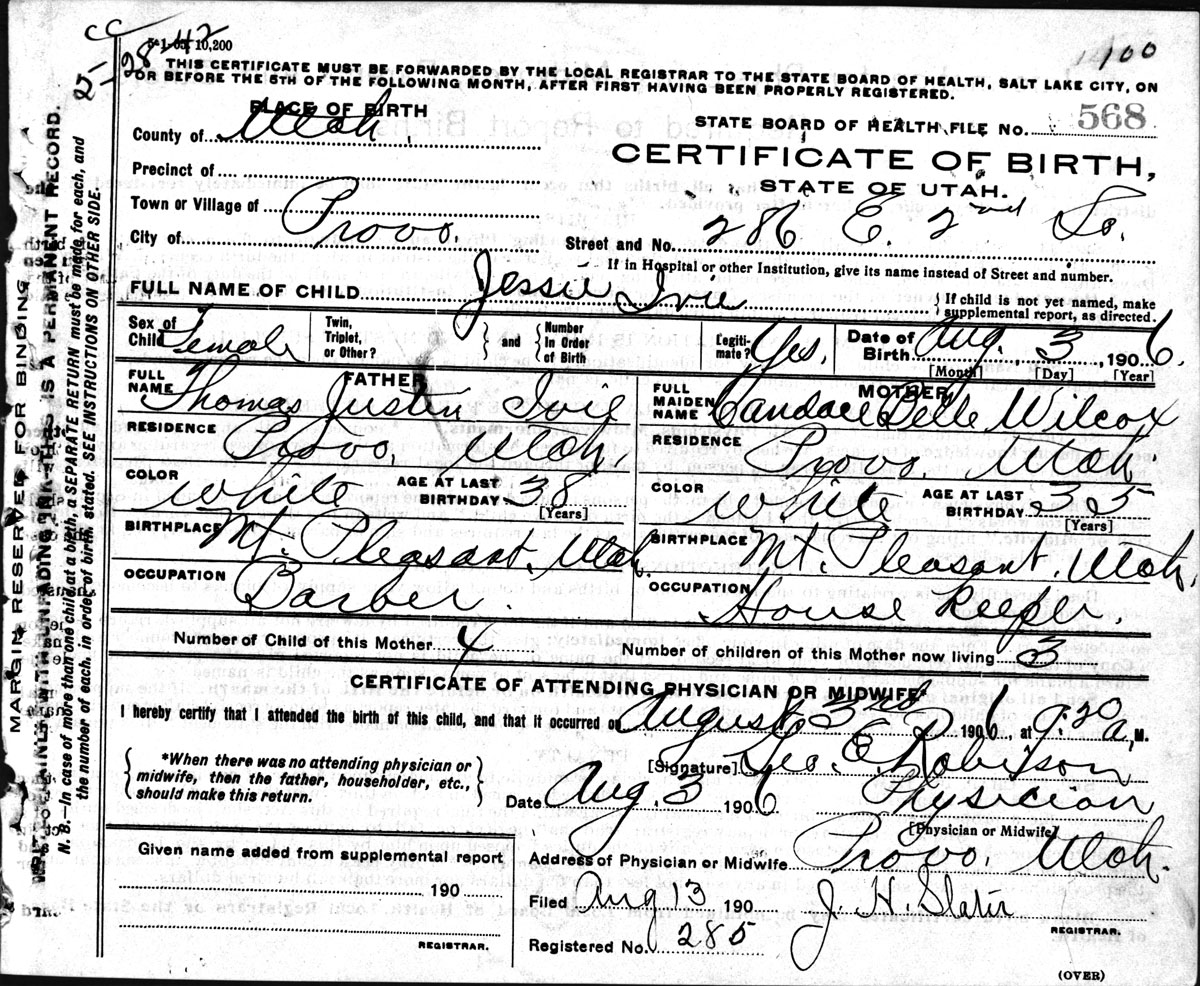 CC
2-28-42
5-1-05 10,200
1100
THIS CERTIFICATE MUST BE FORWARDED BY THE LOCAL REGISTRAR TO THE STATE BOARD OF HEALTH, SALT LAKE CITY, ON
OR BEFORE THE 5TH OF THE FOLLOWING MONTH, AFTER FIRST HAVING BEEN PROPERLY REGISTERED.
PLACE OF BIRTH
County of Utah
STATE BOARD OF HEALTH FILE NO. 568
CERTIFICATE OF BIRTH,
STATE OF UTAH.
Precinct of
Town or Village of Provo.
City of
Street and No. 286 E. 2nd So.
If in Hospital or other Institution, give its name instead of Street and number.
FULL NAME OF CHILD Jessie Ivie
If child is not yet named, make
supplemental report, as directed.
Sex of Child Female
Twin, Triplet, or Other?
and
Number In Order of Birth
Legitimate? Yes.
Date of Birth Aug. 3, 1906.
[Month] [Day] [Year]
FATHER
FULL NAME Thomas Justin Ivie
MOTHER
FULL MAIDEN NAME Candace Belle Wilcox
RESIDENCE Provo Utah
RESIDENCE Provo. Utah.
COLOR White AGE AT LAST BIRTHDAY 38 [Years]
COLOR White AGE AT LAST BIRTHDAY 35 [Years]
BIRTHPLACE Mt. Pleasant. Utah.
BIRTHPLACE Mt. Pleasant. Utah.
OCCUPATION Barber.
OCCUPATION House Keeper.
Number of Child of this Mother 4
Number of children of this Mother now living 3
CERTIFICATE OF ATTENDING PHYSICIAN OR MIDWIFE*
I hereby certify that I attended the birth of this child, and that it occurred on August 3rd 1906, at 9:30 a, M.
*When there was no attending physician or
midwife, then the father, householder, etc.,
should make this return.
[Signature] Geo. E. Robison
Date Aug. 3 1906 Physician
[Physician or Midwife]
Given name added from supplemental report
190
REGISTRAR.
Address of Physician or Midwife Provo. Utah.
Filed Aug 13 190 J. H. Slater
REGISTRAR.
Registered No. 285
(OVER)
MARGIN RESERVED FOR BINDING
WRITE PLAINLY WITH UNFADING INK—THIS IS A PERMANENT RECORD.
N. B.—In case of more than one child at a birth, a SEPARATE RETURN must be made for each, and
the number of each, in order of birth, stated. SEE INSTRUCTIONS ON OTHER SIDE.